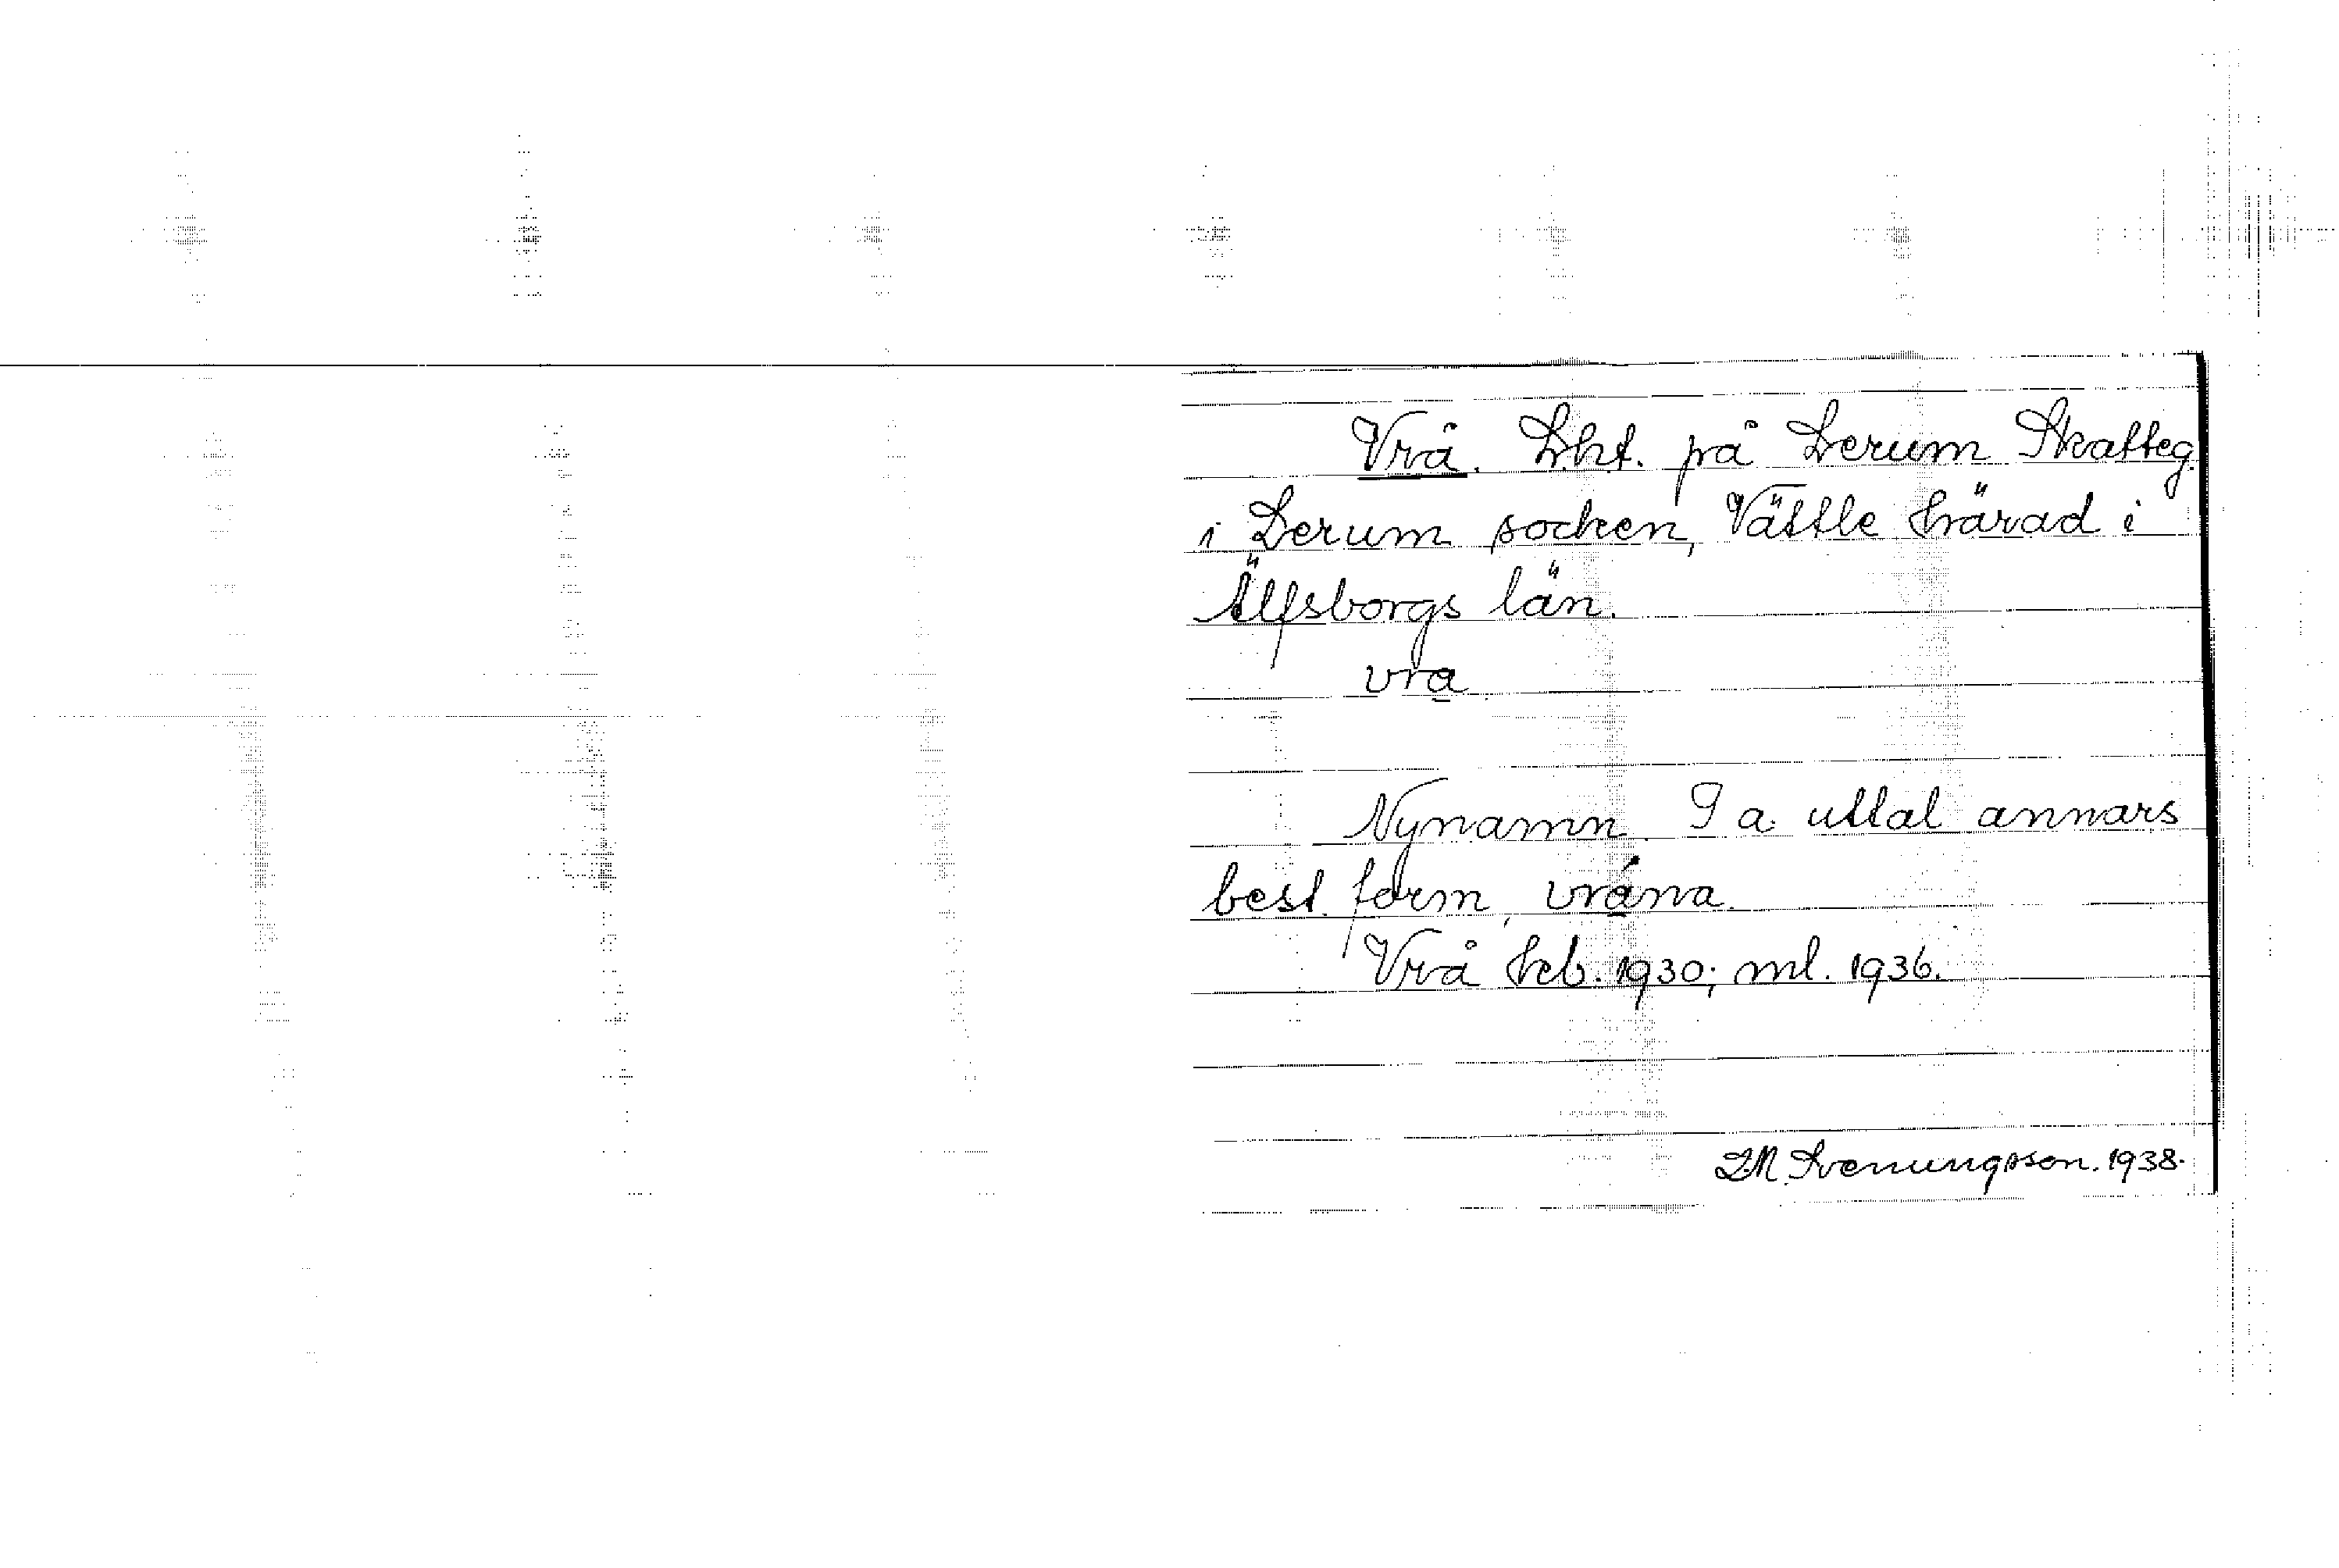 Vrå. Lht. på Lerum Skatteg.
i Lerum socken, Vättle härad i
Älfsborgs län.
vra
Nynamn. I a. uttal annars
best. form, vrána.
Vrå hcb. 1930; ml. 1936.
I.M. Svenungsson. 1938.